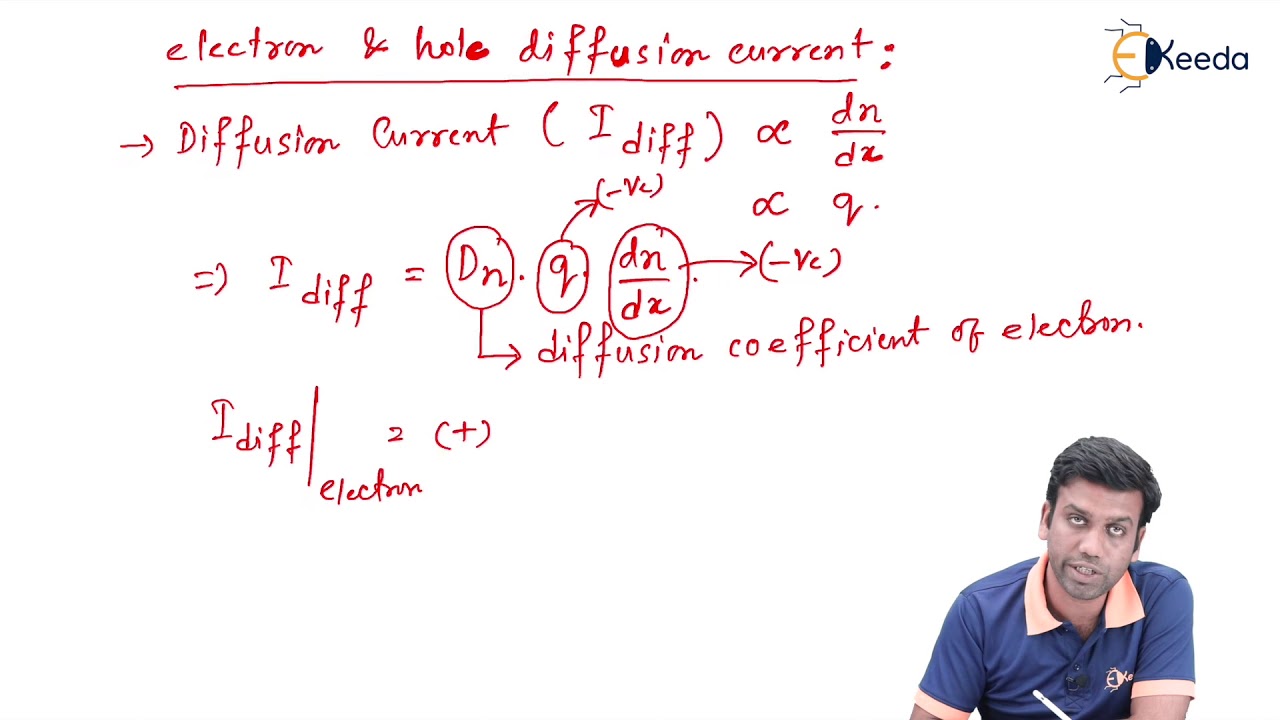 electron & hole diffusion current:
EKeeda
→ Diffusion Current (I diff) ∝ dn/dx
(-ve)
∝ q.
⇒ I diff = Dn . q . dn/dx . → (-ve)
↳ diffusion coefficient of electron.
I diff | electron = (+)
EKe